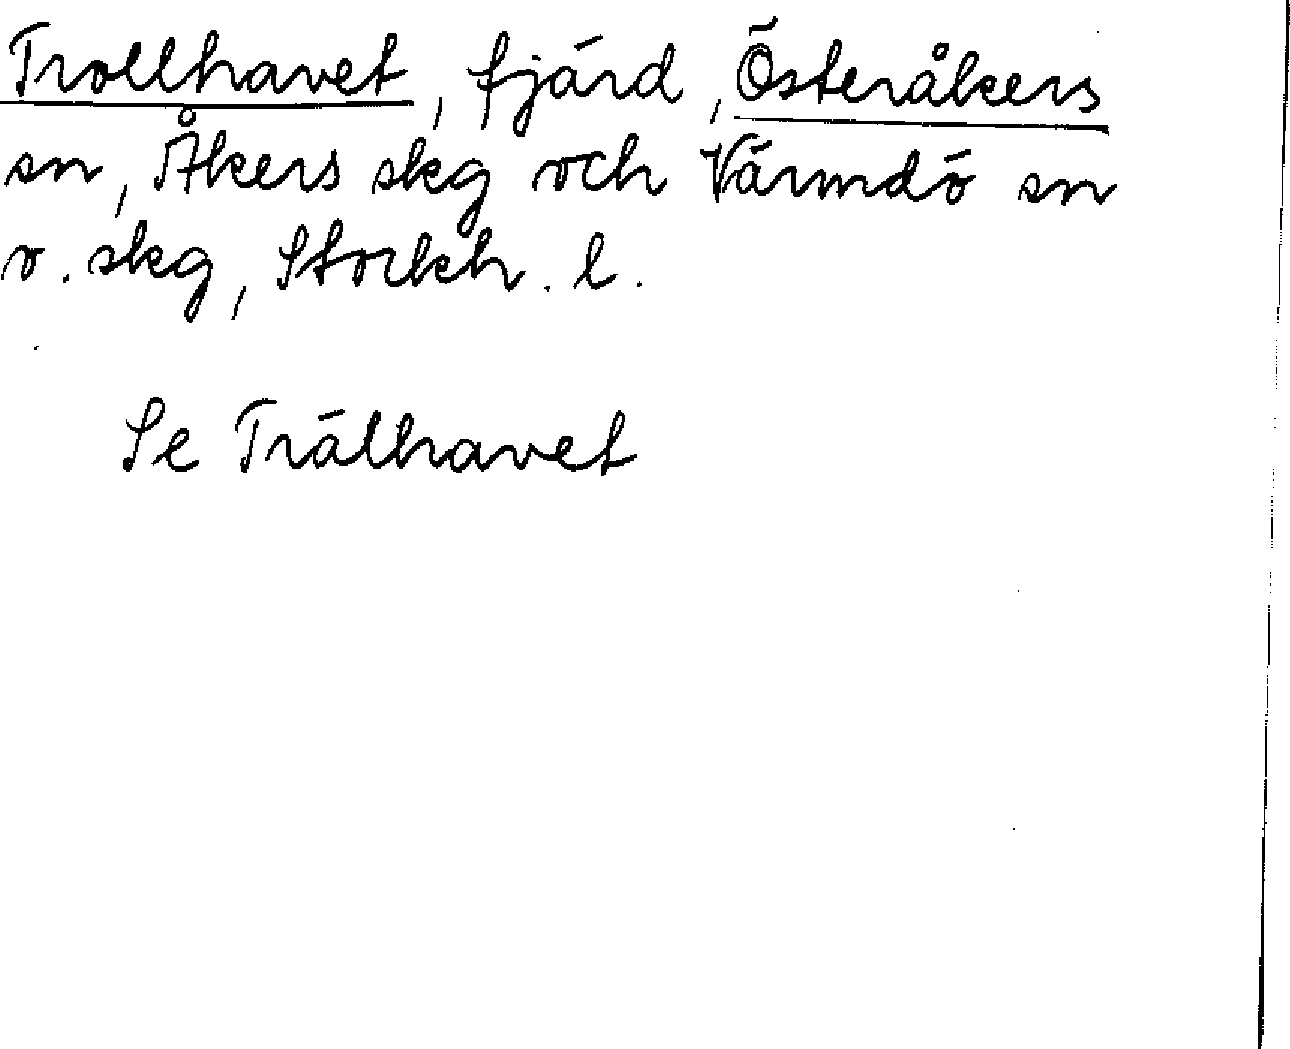 Trollhavet, fjärd, Österåkers
sn, Åkers skg och Värmdö sn
o. skg, Stockh. l.
Se Trälhavet